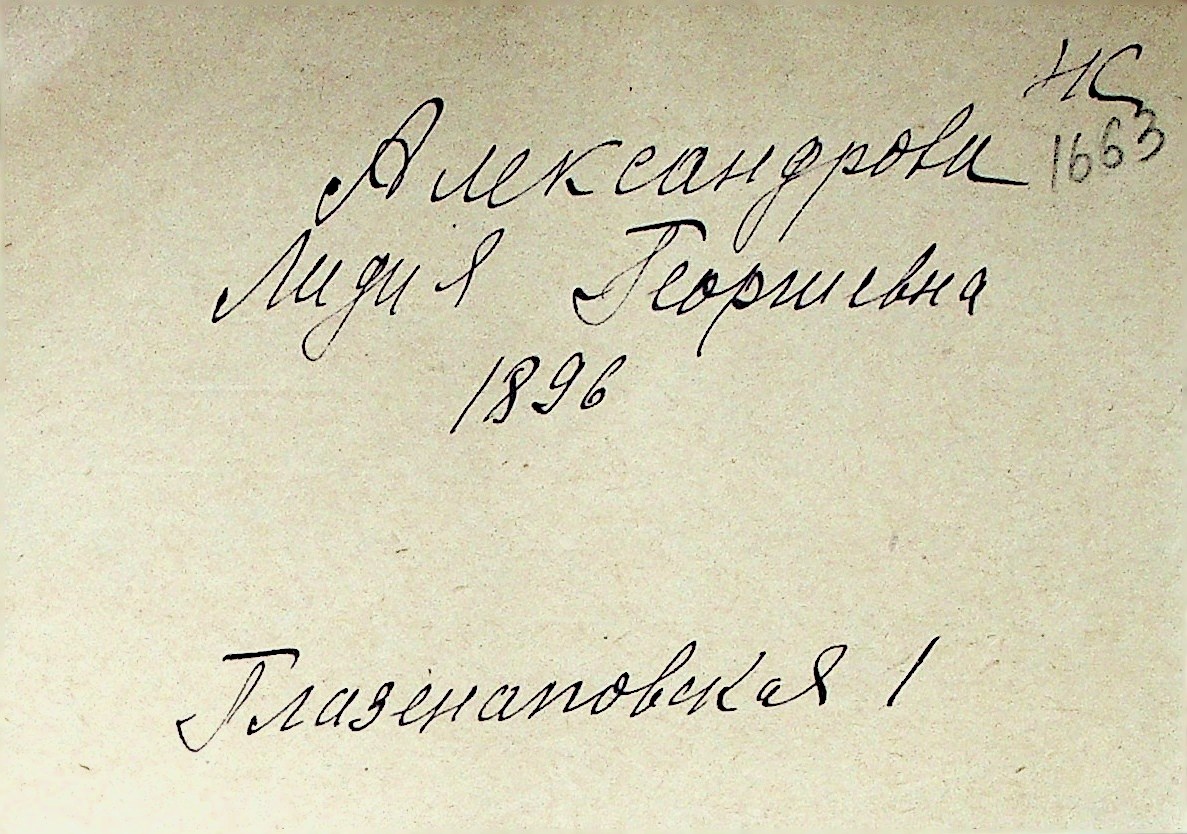 НС
1663
Александрова
Лидия Георгиевна
1896
Глазенаповская 1